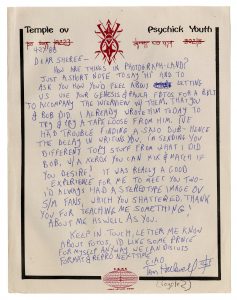 Temple ov Psychick Youth
4-27-88
DEAR SHEREE-
HOW ARE THINGS IN PHOTOGRAPH-LAND?
JUST A SHORT NOTE TO SAY HI AND TO
ASK YOU HOW YOU'D FEEL ABOUT LETTING
US USE YOUR GENESIS & PAULA FOTOS FOR A BKLT
TO ACCOMPANY THE INTERVIEW W/ THEM, THAT YOU
& BOB DID. I ALREADY WROTE HIM TODAY TO
TRY & PRY A TAPE LOOSE FROM HIM. I'VE
HAD TROUBLE FINDING A SALO DUB- HENCE
THE DELAY IN WRITING YOU. I'M SENDING YOU
DIFFERENT TOPY STUFF FROM WHAT I DID
BOB. W/A XEROX YOU CAN MIX & MATCH IF
YOU DESIRE! IT WAS REALLY A GOOD
EXPERIENCE FOR ME TO MEET YOU TWO-
I'D ALWAYS HAD A STEREOTYPE IMAGE OV
S/M FANS, WHICH YOU SHATTERED. THANK
YOU FOR TEACHING ME SOMETHING!
ABOUT ME AS WELL AS YOU.
KEEP IN TOUCH, LETTER ME KNOW
ABOUT FOTOS, I'D LIKE SOME
FOR MYSELF ANYWAY. WE CAN DISCUSS
FORMAT & REPRO NEXT TIME.
CIAO
Tom